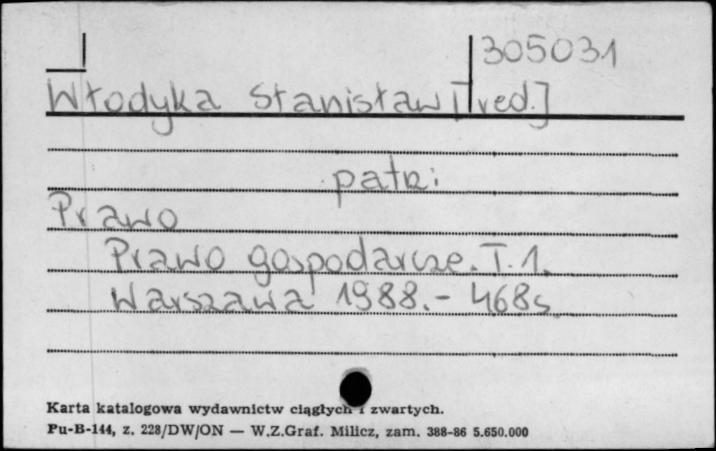 305031
Włodyka Stanisław [red.]
patrz:
Prawo
Prawo gospodarcze. T. 1.
Warszawa 1988.- 468s
Karta katalogowa wydawnictw ciągłych i zwartych.
Pu-B-144, z. 228/DW/ON — W.Z.Graf. Milicz, zam. 388-86 5.650.000